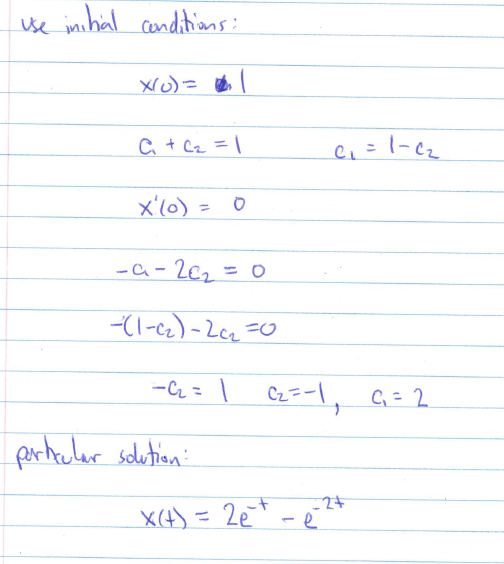 use initial conditions:
x(0) = 1
c₁ + c₂ = 1 c₁ = 1-c₂
x'(0) = 0
-c₁ - 2c₂ = 0
-(1-c₂) - 2c₂ = 0
-c₂ = 1 c₂ = -1, c₁ = 2
particular solution:
x(t) = 2e⁻ᵗ - e⁻²ᵗ